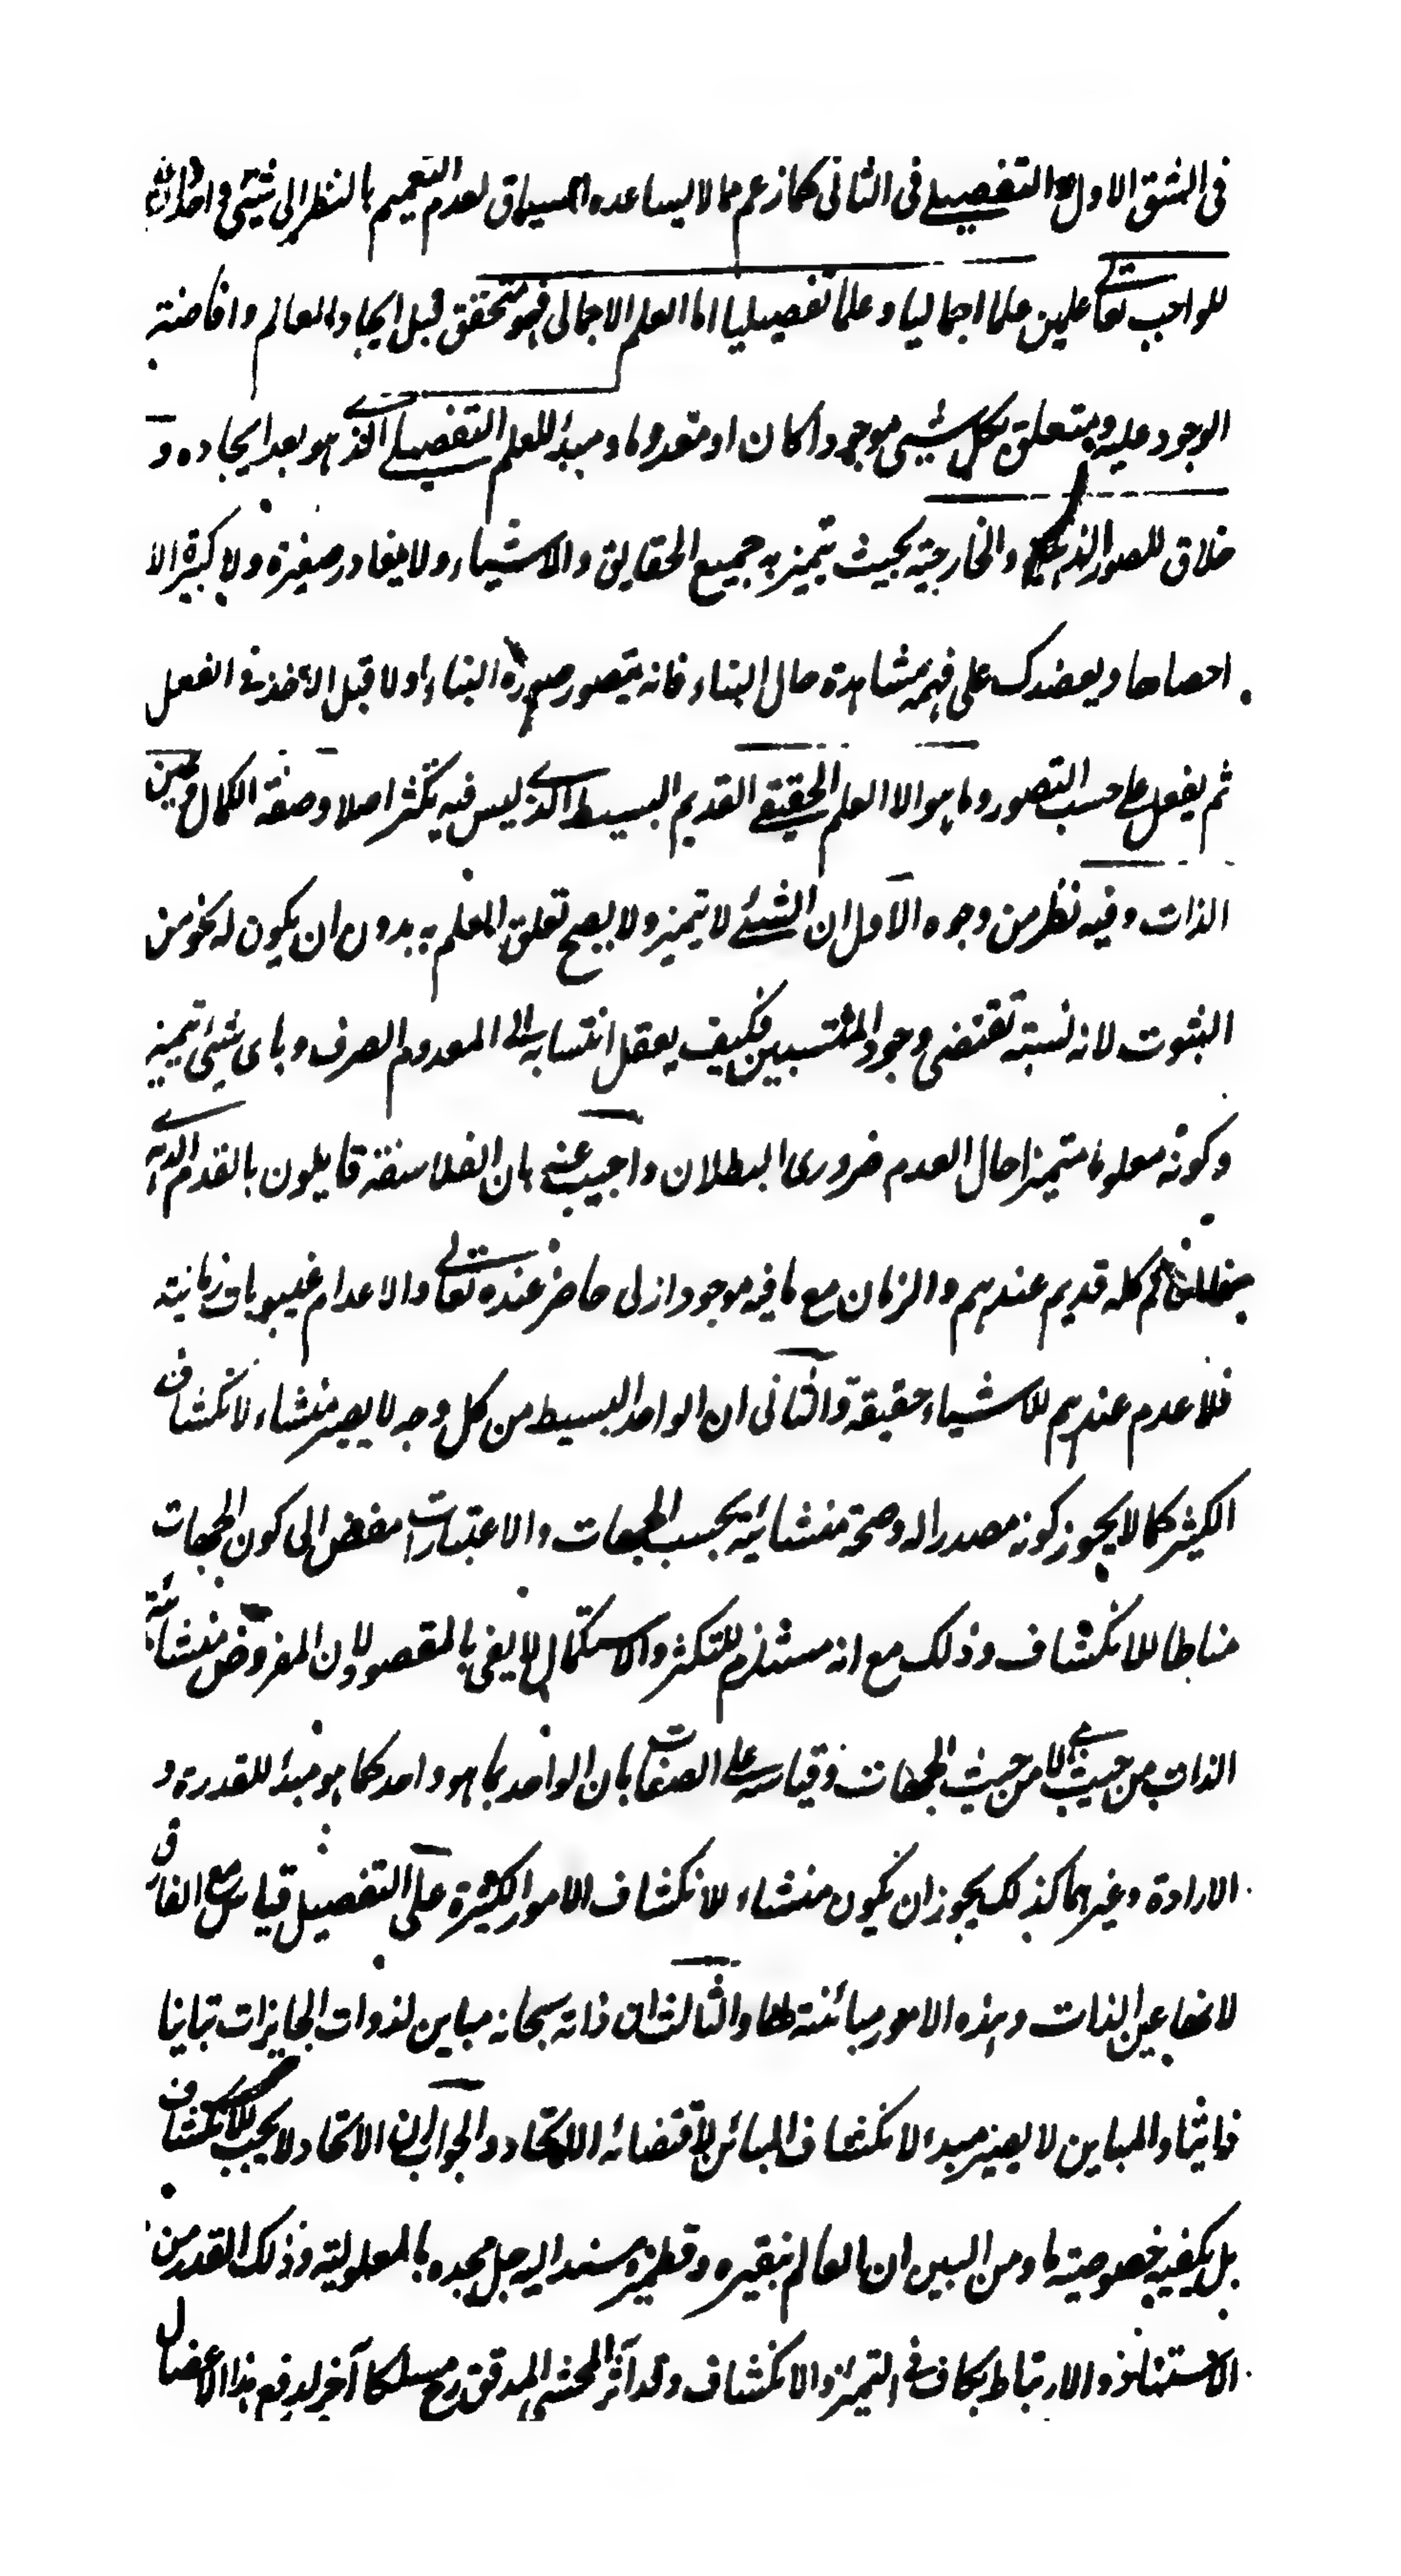 فى الشق الاول والتفصيلى فى الثانى كما زعم مما لا يساعده السياق لعدم التعميم بالنظر الى شيئى واحد
للواجب تعالى علمين علما اجماليا وعلما تفصيليا اما العلم الاجمالى فهو متحقق قبل ايجاد العالم وافاضة
الوجود عليه ويتعلق بكل شيئى موجودا كان او معدوما ومبدأ للعلم التفصيلى الذى هو بعد ايجاده و
خلاق للصور الذهنية والخارجية بحيث يتميز به جميع الحقايق والاشياء ولا يغادر صغيرة ولا كبيرة الا
احصاها ويعضدك على فهمه مشاهدة حال البناء فانه يتصور صورة البناء اولا قبل الاخذ فى الفعل
ثم يفعل على حسب التصور وما هو الا العلم الحقيقى القديم البسيط الذى ليس فيه تكثر اصلا وصفة الكمال وعين
الذات وفيه نظر من وجوه الاول ان الشيئى لا يتميز ولا يصح تعلق العلم به بدون ان يكون له نحو من
الثبوت لانه نسبة تقتضى وجود المنتسبين فكيف يعقل انتسابه الى المعدوم الصرف وباى شيئى تميز
وكونه معلوما متميزا حال العدم ضرورى البطلان واجيب عنه بان الفلاسفة قايلون بالقدم الدهرى
فالعالم كله قديم عندهم والزمان مع ما فيه موجود ازلى حاضر عنده تعالى والاعدام غيبوبات زمانية
فلا عدم عندهم للاشياء حقيقة والثانى ان الواحد البسيط من كل وجه لا يصير منشاء لانكشاف
الكثير كما لا يجوز كونه مصدرا له وصحة منشائية بحسب الجهات والاعتبارات مفض الى كون الجهات
مناطا للانكشاف وذلك مع انه مستلزم للتكثر والاستكمال لا يفى بالمقصود لان المفروض منشائية
الذات من حيث هى لا من حيث الجهات وقياسه على الصفات بان الواحد بما هو واحد كما هو مبدأ للقدرة و
الارادة وغيرهما كذلك يجوز ان يكون منشاء للانكشاف الامور الكثيرة على التفصيل قياس مع الفارق
لانها عين الذات وهذه الامور مبائنة لها والثالث ان ذاته سبحانه مباين لذوات الجايزات تباينا
ذاتيا والمباين لا يصير مبدء لانكشاف المبائن لاقتضائه الاتحاد والجواب ان الاتحاد لا يجب للانكشاف
بل يكفيه خصوصية ما ومن البين ان العالم بنقيره وقطميره مستند اليه جل مجده بالمعلولية وذلك القدر من
الاستناد والارتباط كاف فى التميز والانكشاف وقد آثر المحشى المدقق رح مسلكا آخر لدفع هذا الاعضال